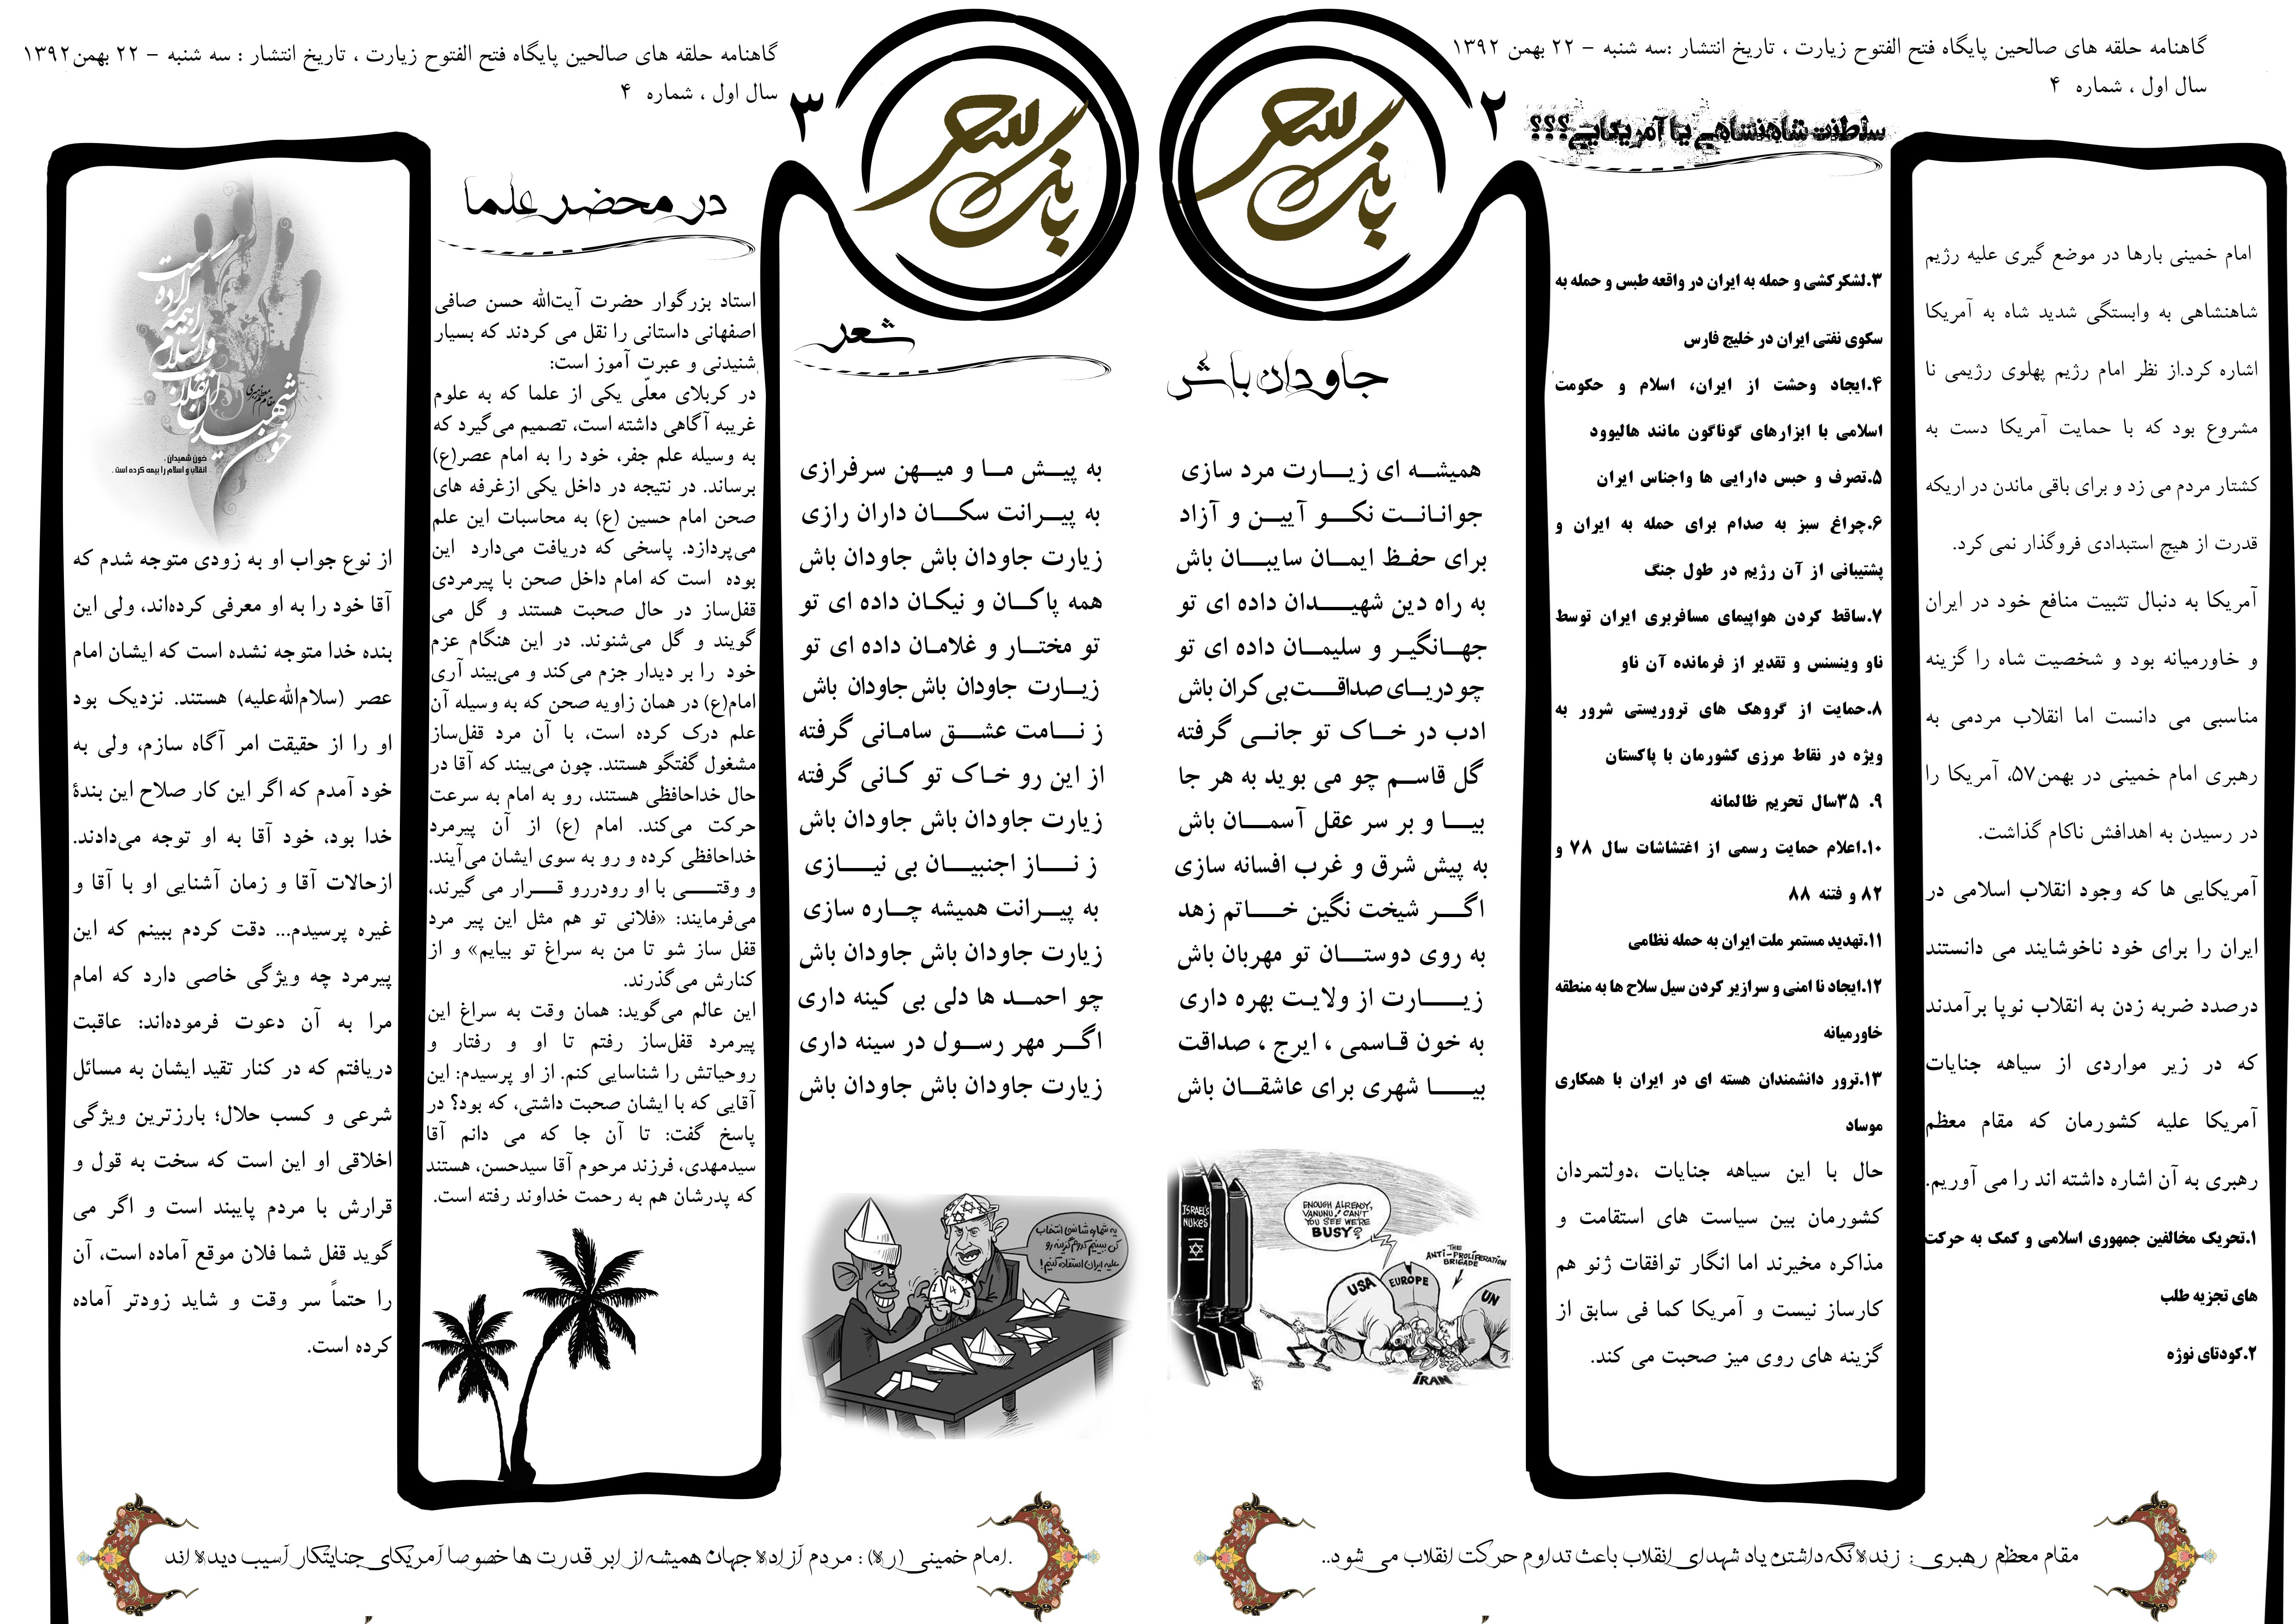 گاهنامه حلقه های صالحین پایگاه فتح الفتوح زیارت ، تاریخ انتشار :سه شنبه – ۲۲ بهمن ۱۳۹۲
سال اول ، شماره ۴
۲
بانگ سحر
سلطنت شاهنشاهی یا آمریکایی؟؟؟
امام خمینی بارها در موضع گیری علیه رژیم
شاهنشاهی به وابستگی شدید شاه به آمریکا
اشاره کرد.از نظر امام رژیم پهلوی رژیمی نا
مشروع بود که با حمایت آمریکا دست به
کشتار مردم می زد و برای باقی ماندن در اریکه
قدرت از هیچ استبدادی فروگذار نمی کرد.
آمریکا به دنبال تثبیت منافع خود در ایران
و خاورمیانه بود و شخصیت شاه را گزینه
مناسبی می دانست اما انقلاب مردمی به
رهبری امام خمینی در بهمن۵۷، آمریکا را
در رسیدن به اهدافش ناکام گذاشت.
آمریکایی ها که وجود انقلاب اسلامی در
ایران را برای خود ناخوشایند می دانستند
درصدد ضربه زدن به انقلاب نوپا برآمدند
که در زیر مواردی از سیاهه جنایات
آمریکا علیه کشورمان که مقام معظم
رهبری به آن اشاره داشته اند را می آوریم.
۱.تحریک مخالفین جمهوری اسلامی و کمک به حرکت
های تجزیه طلب
۲.کودتای نوژه
۳.لشکرکشی و حمله به ایران در واقعه طبس و حمله به
سکوی نفتی ایران در خلیج فارس
۴.ایجاد وحشت از ایران، اسلام و حکومت
اسلامی با ابزارهای گوناگون مانند هالیوود
۵.تصرف و حبس دارایی ها واجناس ایران
۶.چراغ سبز به صدام برای حمله به ایران و
پشتیبانی از آن رژیم در طول جنگ
۷.ساقط کردن هواپیمای مسافربری ایران توسط
ناو وینسنس و تقدیر از فرمانده آن ناو
۸.حمایت از گروهک های تروریستی شرور به
ویژه در نقاط مرزی کشورمان با پاکستان
۹. ۳۵سال تحریم ظالمانه
۱۰.اعلام حمایت رسمی از اغتشاشات سال ۷۸ و
۸۲ و فتنه ۸۸
۱۱.تهدید مستمر ملت ایران به حمله نظامی
۱۲.ایجاد نا امنی و سرازیر کردن سیل سلاح ها به منطقه
خاورمیانه
۱۳.ترور دانشمندان هسته ای در ایران با همکاری
موساد
حال با این سیاهه جنایات ،دولتمردان
کشورمان بین سیاست های استقامت و
مذاکره مخیرند اما انگار توافقات ژنو هم
کارساز نیست و آمریکا کما فی سابق از
گزینه های روی میز صحبت می کند.
جاودان باش
همیشه ای زیارت مرد سازی
جوانانت نکو آیین و آزاد
برای حفظ ایمان سایبان باش
به راه دین شهیدان داده ای تو
جهانگیر و سلیمان داده ای تو
چو دریای صداقت بی کران باش
ادب در خاک تو جانی گرفته
گل قاسم چو می بوید به هر جا
بیا و بر سر عقل آسمان باش
به پیش شرق و غرب افسانه سازی
اگر شیخت نگین خاتم زهد
به روی دوستان تو مهربان باش
زیارت از ولایت بهره داری
به خون قاسمی ، ایرج ، صداقت
بیا شهری برای عاشقان باش
ISRAEL'S
NUKES
ENOUGH ALREADY,
VANUNU! CAN'T
YOU SEE WE'RE
BUSY?
THE
ANTI-PROLIFERATION
BRIGADE
USA
EUROPE
UN
IRAN
مقام معظم رهبری : زنده نگه داشتن یاد شهدای انقلاب باعث تداوم حرکت انقلاب می شود..
گاهنامه حلقه های صالحین پایگاه فتح الفتوح زیارت ، تاریخ انتشار : سه شنبه – ۲۲ بهمن۱۳۹۲
سال اول ، شماره ۴
۳
بانگ سحر
شعر
به پیش ما و میهن سرفرازی
به پیرانت سکان داران رازی
زیارت جاودان باش جاودان باش
همه پاکان و نیکان داده ای تو
تو مختار و غلامان داده ای تو
زیارت جاودان باش جاودان باش
ز نامت عشق سامانی گرفته
از این رو خاک تو کانی گرفته
زیارت جاودان باش جاودان باش
ز ناز اجنبیان بی نیازی
به پیرانت همیشه چاره سازی
زیارت جاودان باش جاودان باش
چو احمد ها دلی بی کینه داری
اگر مهر رسول در سینه داری
زیارت جاودان باش جاودان باش
یه شماره شانسی انتخاب
کن ببینیم کدوم گزینه رو
علیه ایران استفاده کنیم!
در محضر علما
استاد بزرگوار حضرت آیت‌الله حسن صافی
اصفهانی داستانی را نقل می کردند که بسیار
شنیدنی و عبرت آموز است:
در کربلای معلّی یکی از علما که به علوم
غریبه آگاهی داشته است، تصمیم می‌گیرد که
به وسیله علم جفر، خود را به امام عصر(ع)
برساند. در نتیجه در داخل یکی ازغرفه های
صحن امام حسین (ع) به محاسبات این علم
می‌پردازد. پاسخی که دریافت می‌دارد این
بوده است که امام داخل صحن با پیرمردی
قفل‌ساز در حال صحبت هستند و گل می
گویند و گل می‌شنوند. در این هنگام عزم
خود را بر دیدار جزم می‌کند و می‌بیند آری
امام(ع) در همان زاویه صحن که به وسیله آن
علم درک کرده است، با آن مرد قفل‌ساز
مشغول گفتگو هستند. چون می‌بیند که آقا در
حال خداحافظی هستند، رو به امام به سرعت
حرکت می‌کند. امام (ع) از آن پیرمرد
خداحافظی کرده و رو به سوی ایشان می‌آیند.
و وقتی با او رودررو قرار می گیرند،
می‌فرمایند: «فلانی تو هم مثل این پیر مرد
قفل ساز شو تا من به سراغ تو بیایم» و از
کنارش می‌گذرند.
این عالم می‌گوید: همان وقت به سراغ این
پیرمرد قفل‌ساز رفتم تا او و رفتار و
روحیاتش را شناسایی کنم. از او پرسیدم: این
آقایی که با ایشان صحبت داشتی، که بود؟ در
پاسخ گفت: تا آن جا که می دانم آقا
سیدمهدی، فرزند مرحوم آقا سیدحسن، هستند
که پدرشان هم به رحمت خداوند رفته است.
خون شهیدان
انقلاب و اسلام را
بیمه کرده است
مقام معظم رهبری
خون شهیدان ،
انقلاب و اسلام را بیمه کرده است .
از نوع جواب او به زودی متوجه شدم که
آقا خود را به او معرفی کرده‌اند، ولی این
بنده خدا متوجه نشده است که ایشان امام
عصر (سلام‌الله‌علیه) هستند. نزدیک بود
او را از حقیقت امر آگاه سازم، ولی به
خود آمدم که اگر این کار صلاح این بندهٔ
خدا بود، خود آقا به او توجه می‌دادند.
ازحالات آقا و زمان آشنایی او با آقا و
غیره پرسیدم... دقت کردم ببینم که این
پیرمرد چه ویژگی خاصی دارد که امام
مرا به آن دعوت فرموده‌اند: عاقبت
دریافتم که در کنار تقید ایشان به مسائل
شرعی و کسب حلال؛ بارزترین ویژگی
اخلاقی او این است که سخت به قول و
قرارش با مردم پایبند است و اگر می
گوید قفل شما فلان موقع آماده است، آن
را حتماً سر وقت و شاید زودتر آماده
کرده است.
.امام خمینی (ره) : مردم آزاده جهان همیشه از ابر قدرت ها خصوصا آمریکای جنایتکار آسیب دیده اند